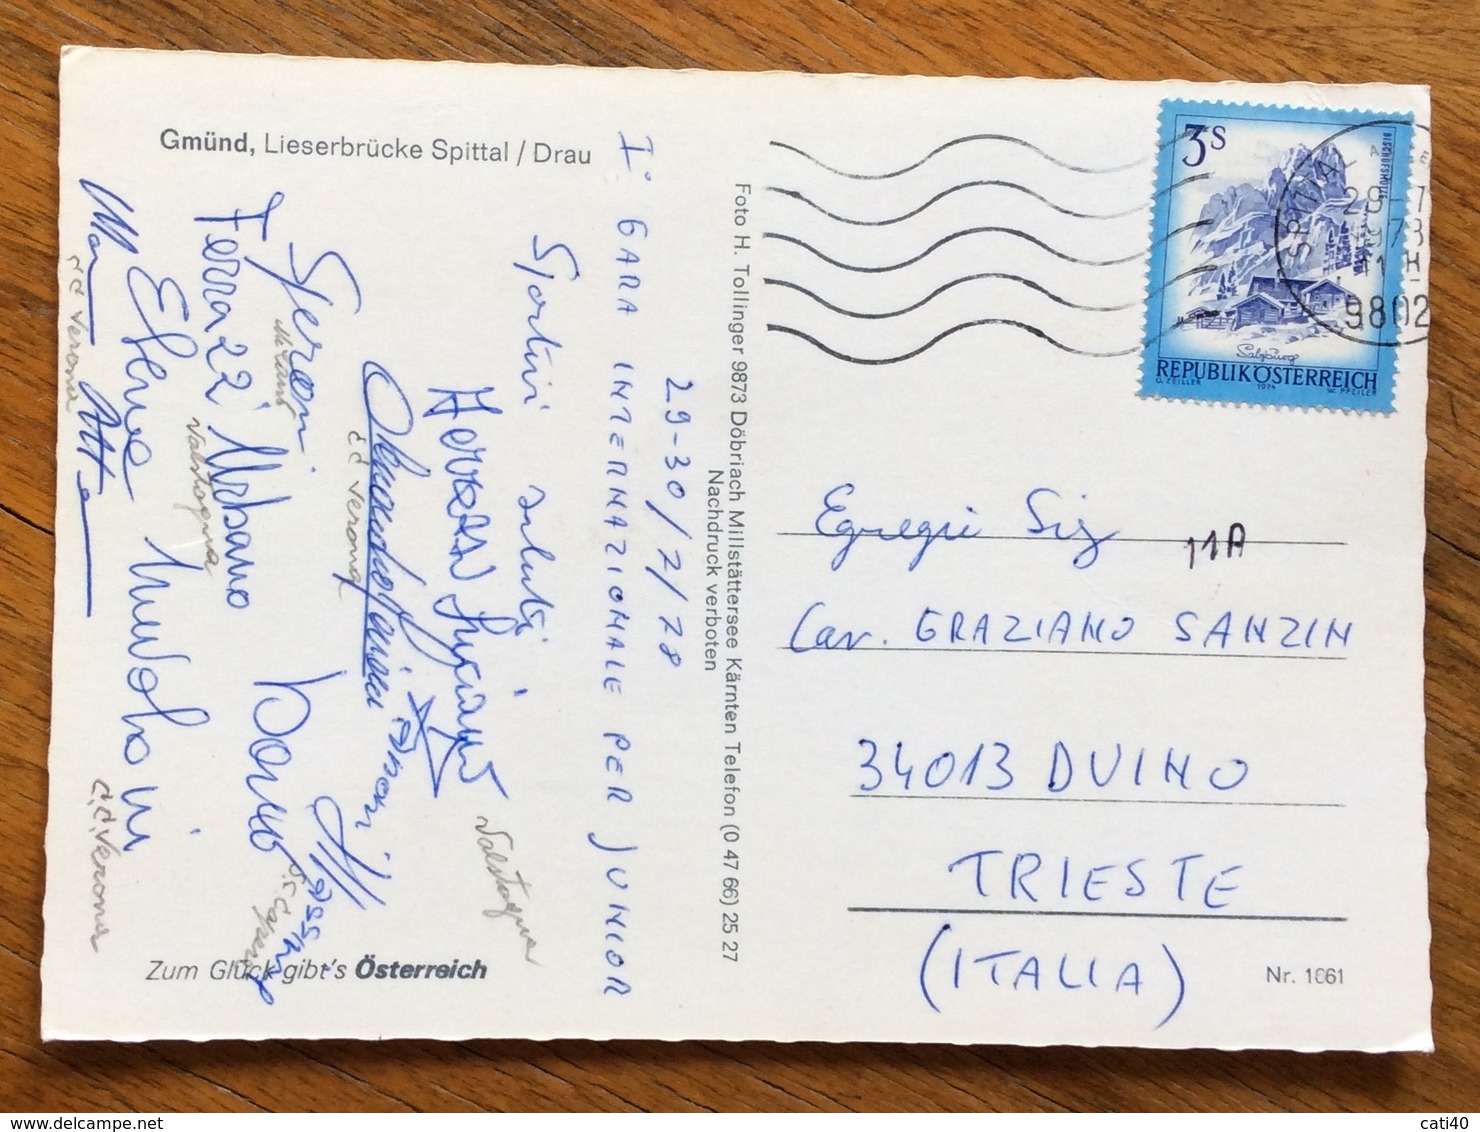 Gmünd, Lieserbrücke Spittal / Drau
I° GARA INTERNAZIONALE PER JUNIOR
29-30/7/78
Sportivi saluti
Luciano
Valstagna
c.c. Verona
Speroni
Milano
Ferrazzi Urbano
Valstagna
Massimo
c.c. Verona
c.c. Verona
Zum Glück gibt's Österreich
Foto H. Tollinger 9873 Döbriach Millstättersee Kärnten Telefon (0 47 66) 25 27
Nachdruck verboten
3S
BISCHOFSMÜTZE
Salzburg
REPUBLIK ÖSTERREICH
O. ZEILER 1974 W. PFEILER
SPITTAL A
29.-7
1978
9802
Egregio Sig
11A
Cav. GRAZIANO SANZIN
34013 DUINO
TRIESTE
(ITALIA)
Nr. 1661
cati40